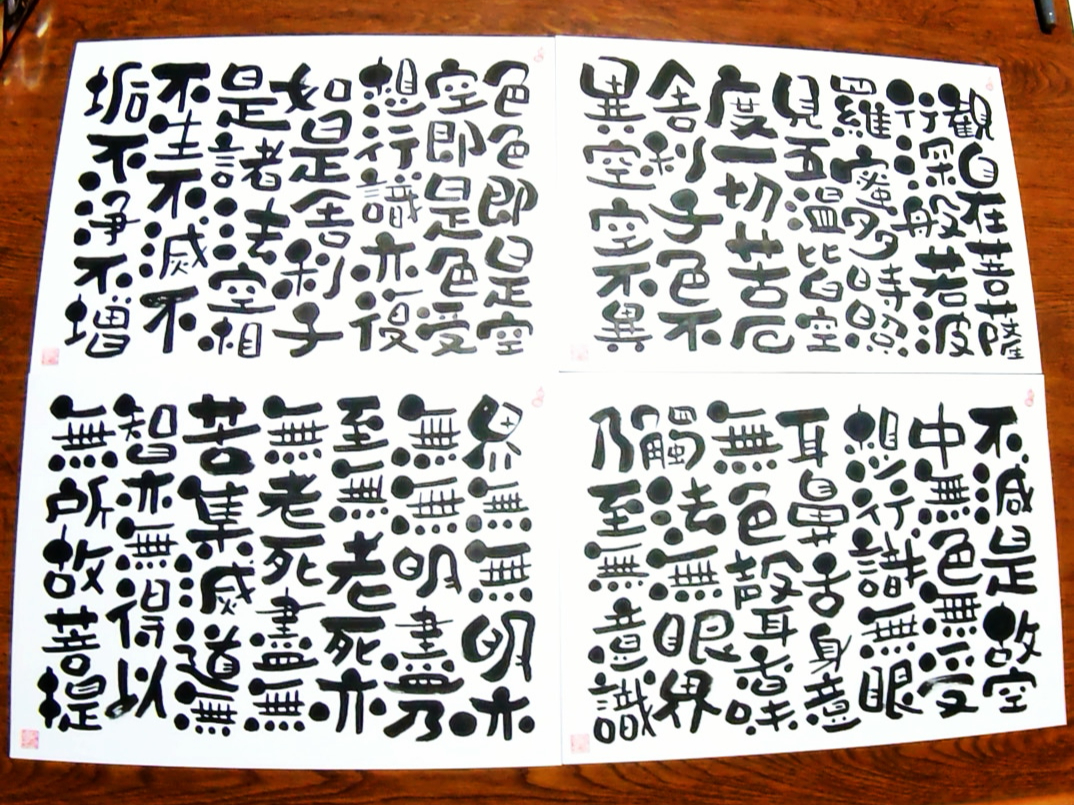 觀自在菩薩
行深般若波
羅蜜多時照
見五温皆空
度一切苦厄
舎利子色不
異空空不異
色色即是空
空即是色受
想行識亦復
如是舎利子
是諸法空相
不生不滅不
垢不浄不増
不減是故空
中無色無受
想行識無眼
耳鼻舌身意
無色聲香味
觸法無眼界
乃至無意識
界無無明亦
無無明盡乃
至無老死亦
無老死盡無
苦集滅道無
智亦無得以
無所故菩提